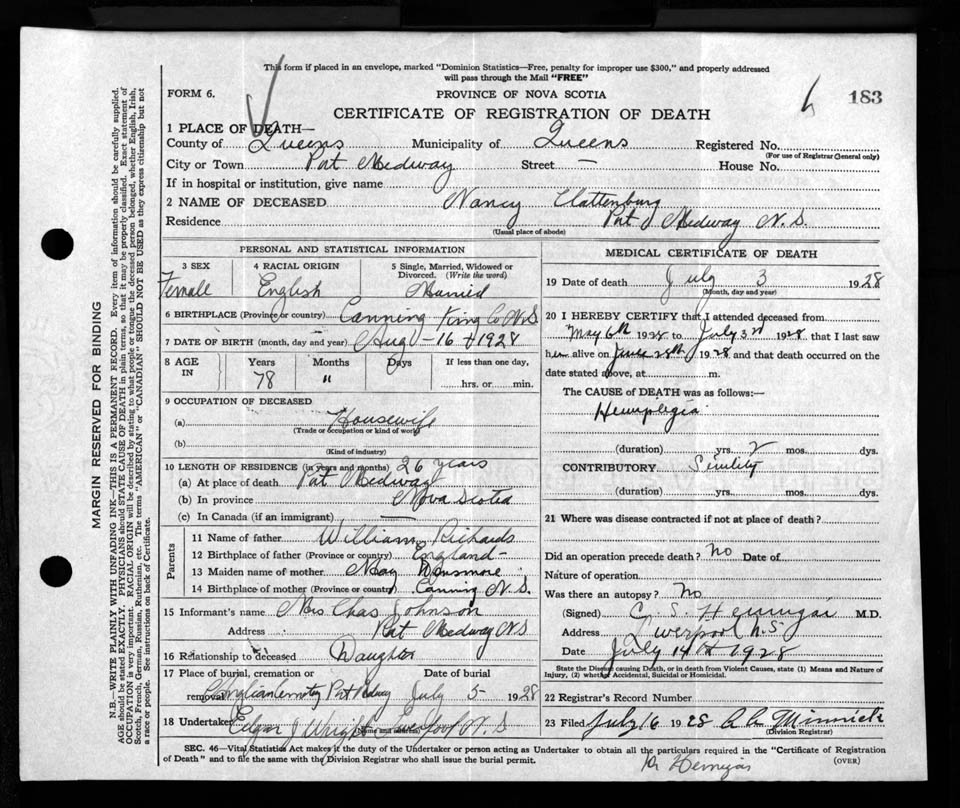 This form if placed in an envelope, marked "Dominion Statistics—Free, penalty for improper use $300," and properly addressed
will pass through the Mail "FREE"
FORM 6. PROVINCE OF NOVA SCOTIA 183
CERTIFICATE OF REGISTRATION OF DEATH
1 PLACE OF DEATH—
County of Queens Municipality of Queens Registered No.
(For use of Registrar General only)
City or Town Port Medway Street — House No.
If in hospital or institution, give name
2 NAME OF DECEASED Nancy Clattenburg
Residence Port Medway N.S.
(Usual place of abode)
PERSONAL AND STATISTICAL INFORMATION
3 SEX 4 RACIAL ORIGIN 5 Single, Married, Widowed or Divorced. (Write the word)
Female English Married
6 BIRTHPLACE (Province or country) Canning King Co N.S
7 DATE OF BIRTH (month, day and year) Aug - 16 1928
8 AGE IN Years Months Days If less than one day,
78 " hrs. or min.
9 OCCUPATION OF DECEASED
(a) Housewife
(Trade or occupation or kind of work)
(b)
(Kind of industry)
10 LENGTH OF RESIDENCE (in years and months) 26 years
(a) At place of death Port Medway
(b) In province Nova Scotia
(c) In Canada (if an immigrant) —
Parents
11 Name of father William Richards
12 Birthplace of father (Province or country) England
13 Maiden name of mother May Densmore
14 Birthplace of mother (Province or country) Canning N.S.
15 Informant's name Mrs Chas Johnson
Address Port Medway N.S
16 Relationship to deceased Daughter
17 Place of burial, cremation or removal Date of burial
Anglian Cemetery Port Medway July 5 1928
18 Undertaker Edgar J Wright Liverpool N.S
(Name and address)
MEDICAL CERTIFICATE OF DEATH
19 Date of death July 3 1928
(Month, day and year)
20 I HEREBY CERTIFY that I attended deceased from
May 6th 1928 to July 3rd 1928 that I last saw
her alive on June 28th 1928 and that death occurred on
date stated above, at m.
The CAUSE of DEATH was as follows:—
Hemiplegia
(duration) yrs. 2 mos. dys.
CONTRIBUTORY Senility
(duration) yrs. mos. dys.
21 Where was disease contracted if not at place of death?
Did an operation precede death? No Date of
Nature of operation
Was there an autopsy? No
(Signed) C. S. Hennigar M.D.
Address Liverpool N.S
July 14th 1928
State the Disease causing Death, or in death from Violent Causes, state (1) Means and Nature of
Injury, (2) whether Accidental, Suicidal or Homicidal.
22 Registrar's Record Number
23 Filed July 16 1928 Minnick
(Division Registrar)
SEC. 46—Vital Statistics Act makes it the duty of the Undertaker or person acting as Undertaker to obtain all the particulars required in the "Certificate of Registration
of Death" and to file the same with the Division Registrar who shall issue the burial permit. (OVER)
Dr Hennigar
MARGIN RESERVED FOR BINDING
N.B.—WRITE PLAINLY WITH UNFADING INK—THIS IS A PERMANENT RECORD. Every item of information should be carefully supplied.
AGE should be stated EXACTLY. PHYSICIANS should STATE CAUSE OF DEATH in plain terms, so that it may be properly classified. Exact statement of
OCCUPATION is very important. RACIAL ORIGIN will be described by stating to what people or tongue the deceased person belonged, whether English, Irish,
Scotch, French, German, Russian, Ruthenian, etc. The terms "AMERICAN" or "CANADIAN" SHOULD NOT BE USED as they express citizenship but not
a race or people. See instructions on back of Certificate.